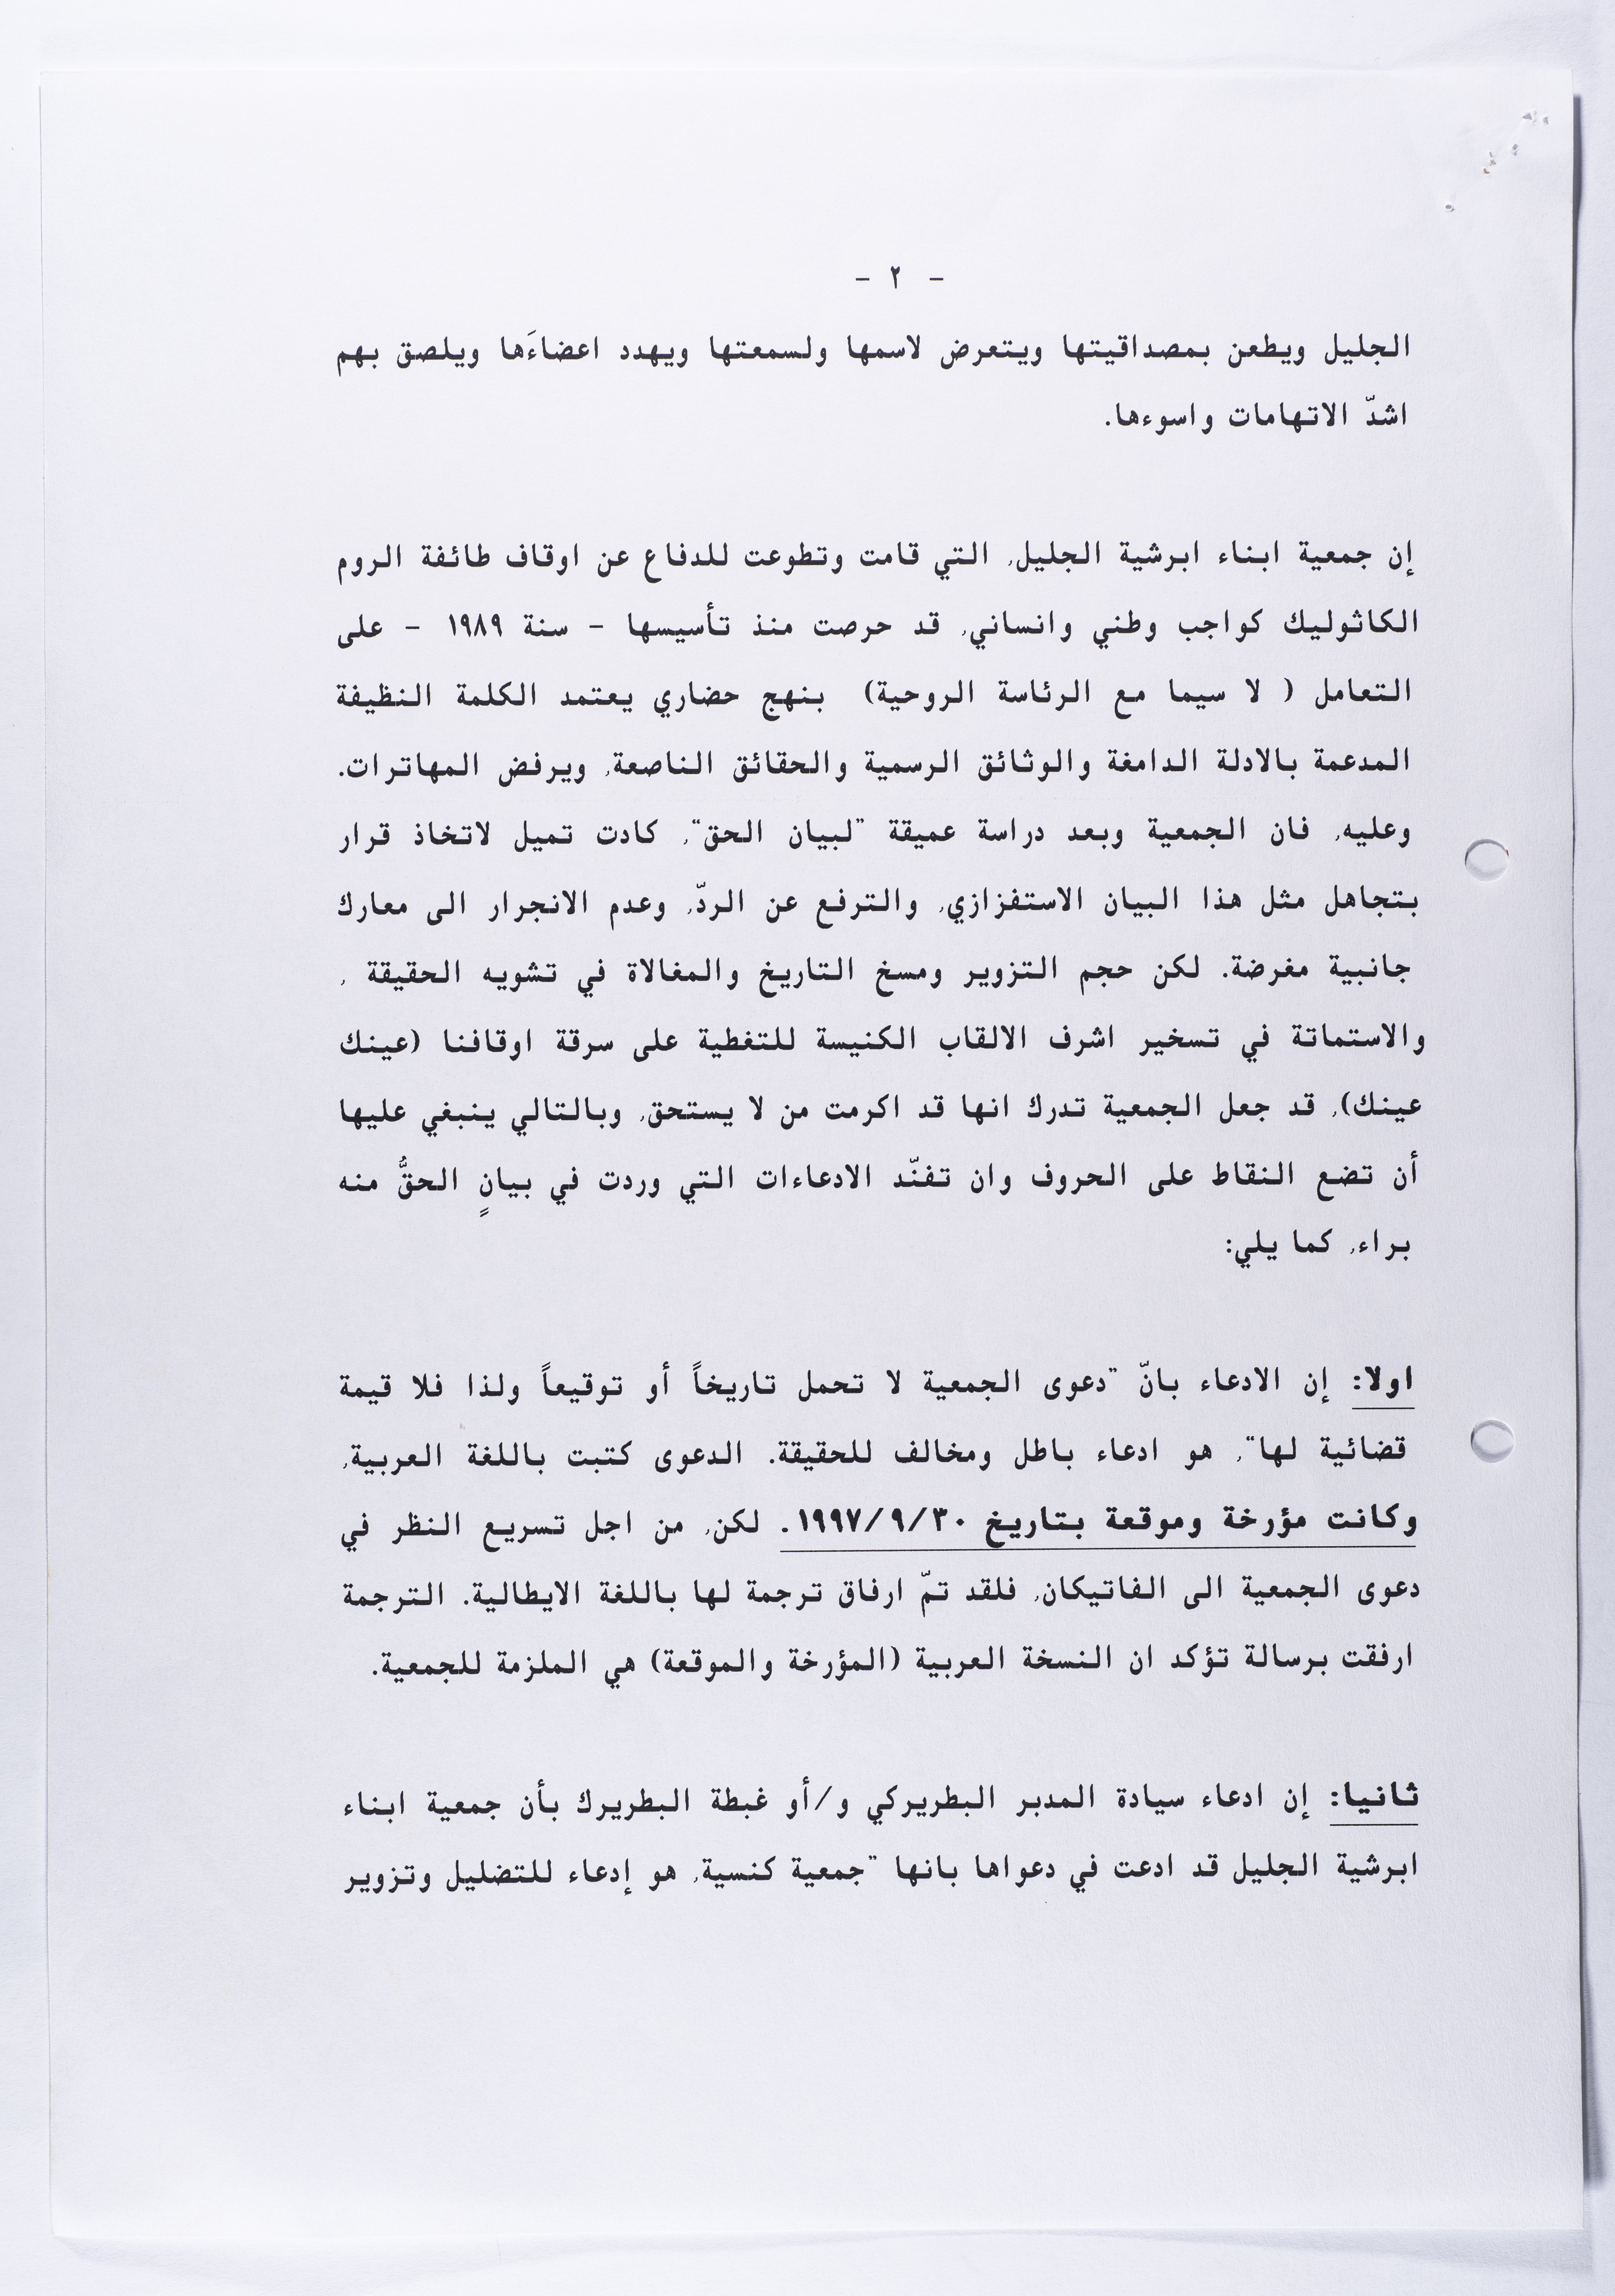 - ٢ -
الجليل ويطعن بمصداقيتها ويتعرض لاسمها ولسمعتها ويهدد اعضاءَها ويلصق بهم
اشدّ الاتهامات واسوءها.
إن جمعية ابناء ابرشية الجليل, التي قامت وتطوعت للدفاع عن اوقاف طائفة الروم
الكاثوليك كواجب وطني وانساني, قد حرصت منذ تأسيسها - سنة ١٩٨٩ - على
التعامل ( لا سيما مع الرئاسة الروحية) بنهج حضاري يعتمد الكلمة النظيفة
المدعمة بالادلة الدامغة والوثائق الرسمية والحقائق الناصعة, ويرفض المهاترات.
وعليه, فان الجمعية وبعد دراسة عميقة "لبيان الحق", كادت تميل لاتخاذ قرار
بتجاهل مثل هذا البيان الاستفزازي, والترفع عن الردّ, وعدم الانجرار الى معارك
جانبية مغرضة. لكن حجم التزوير ومسخ التاريخ والمغالاة في تشويه الحقيقة ,
والاستماتة في تسخير اشرف الالقاب الكنيسة للتغطية على سرقة اوقافنا (عينك
عينك), قد جعل الجمعية تدرك انها قد اكرمت من لا يستحق, وبالتالي ينبغي عليها
أن تضع النقاط على الحروف وان تفنّد الادعاءات التي وردت في بيانٍ الحقُّ منه
براء, كما يلي:
اولا: إن الادعاء بانّ "دعوى الجمعية لا تحمل تاريخاً أو توقيعاً ولذا فلا قيمة
قضائية لها", هو ادعاء باطل ومخالف للحقيقة. الدعوى كتبت باللغة العربية,
وكانت مؤرخة وموقعة بتاريخ ١٩٩٧/٩/٣٠. لكن, من اجل تسريع النظر في
دعوى الجمعية الى الفاتيكان, فلقد تمّ ارفاق ترجمة لها باللغة الايطالية. الترجمة
ارفقت برسالة تؤكد ان النسخة العربية (المؤرخة والموقعة) هي الملزمة للجمعية.
ثانيا: إن ادعاء سيادة المدبر البطريركي و/أو غبطة البطريرك بأن جمعية ابناء
ابرشية الجليل قد ادعت في دعواها بانها "جمعية كنسية, هو إدعاء للتضليل وتزوير